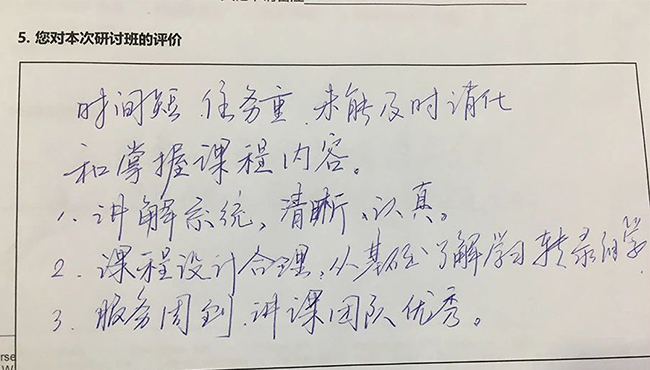 5. 您对本次研讨班的评价
时间短 任务重 未能及时消化
和掌握课程内容。
1. 讲解系统、清晰、认真。
2. 课程设计合理，从基础了解学习转录组学
3. 服务周到，讲课团队优秀。
rse
W